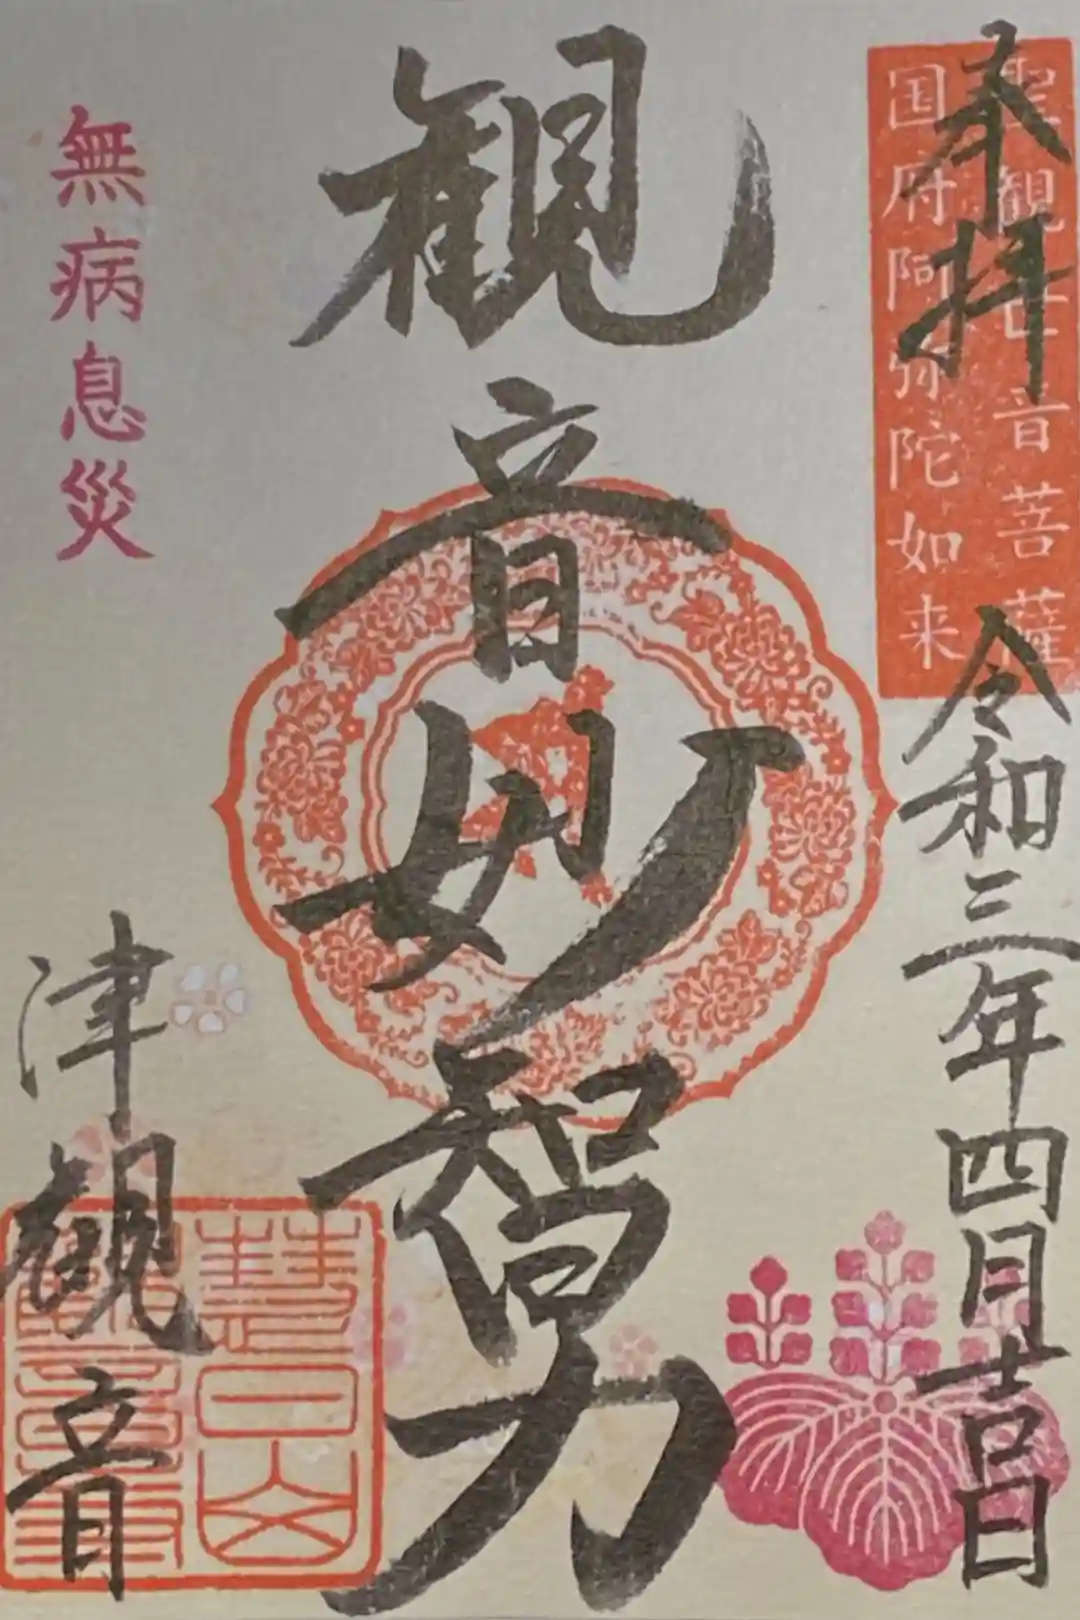 奉拝
令和三年四月吉日
聖観世音菩薩
国府阿弥陀如来
観音妙智力
無病息災
津観音
慧日山